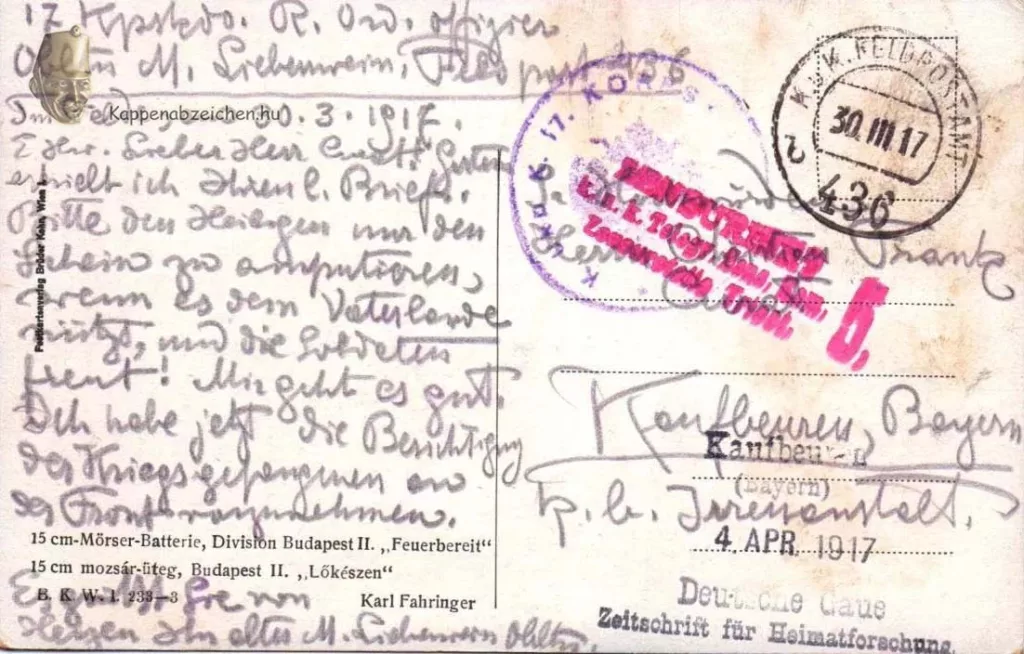 17. Kpskdo. R. Ord. offizier
Obltn M. Liebenwein, Feldpost 436
Kappenabzeichen.hu
Im Felde, 30.3.1917.
Lieber Herr
erhielt ich Ihren l. Brief.
Bitte den Heiligen nur den
zu amputieren,
wenn es dem Vaterlande
nützt, und die Soldaten
freut! Mir geht es gut.
Ich habe jetzt die Besichtigung
der Kriegsgefangenen an
der Front vorzunehmen.
15 cm-Mörser-Batterie, Division Budapest II. „Feuerbereit“
15 cm mozsár-üteg, Budapest II. „Lőkészen“
B. K. W. I. 233—3
Karl Fahringer
Es grüsst Sie von
Herzen Ihr alter M. Liebenwein Obltn.
Postkartenverlag Brüder Kohn, Wien I.
K. UND K. 17. KORPS
K.u.K. FELDPOSTAMT
30. III 17
436
ZENSURIERT
K. u. k.
Zensurstelle
Herrn
Frank
Kaufbeuren, Bayern
k. b. Irrenanstalt.
Kaufbeuren
(Bayern)
4. APR. 1917
Deutsche Gaue
Zeitschrift für Heimatforschung.